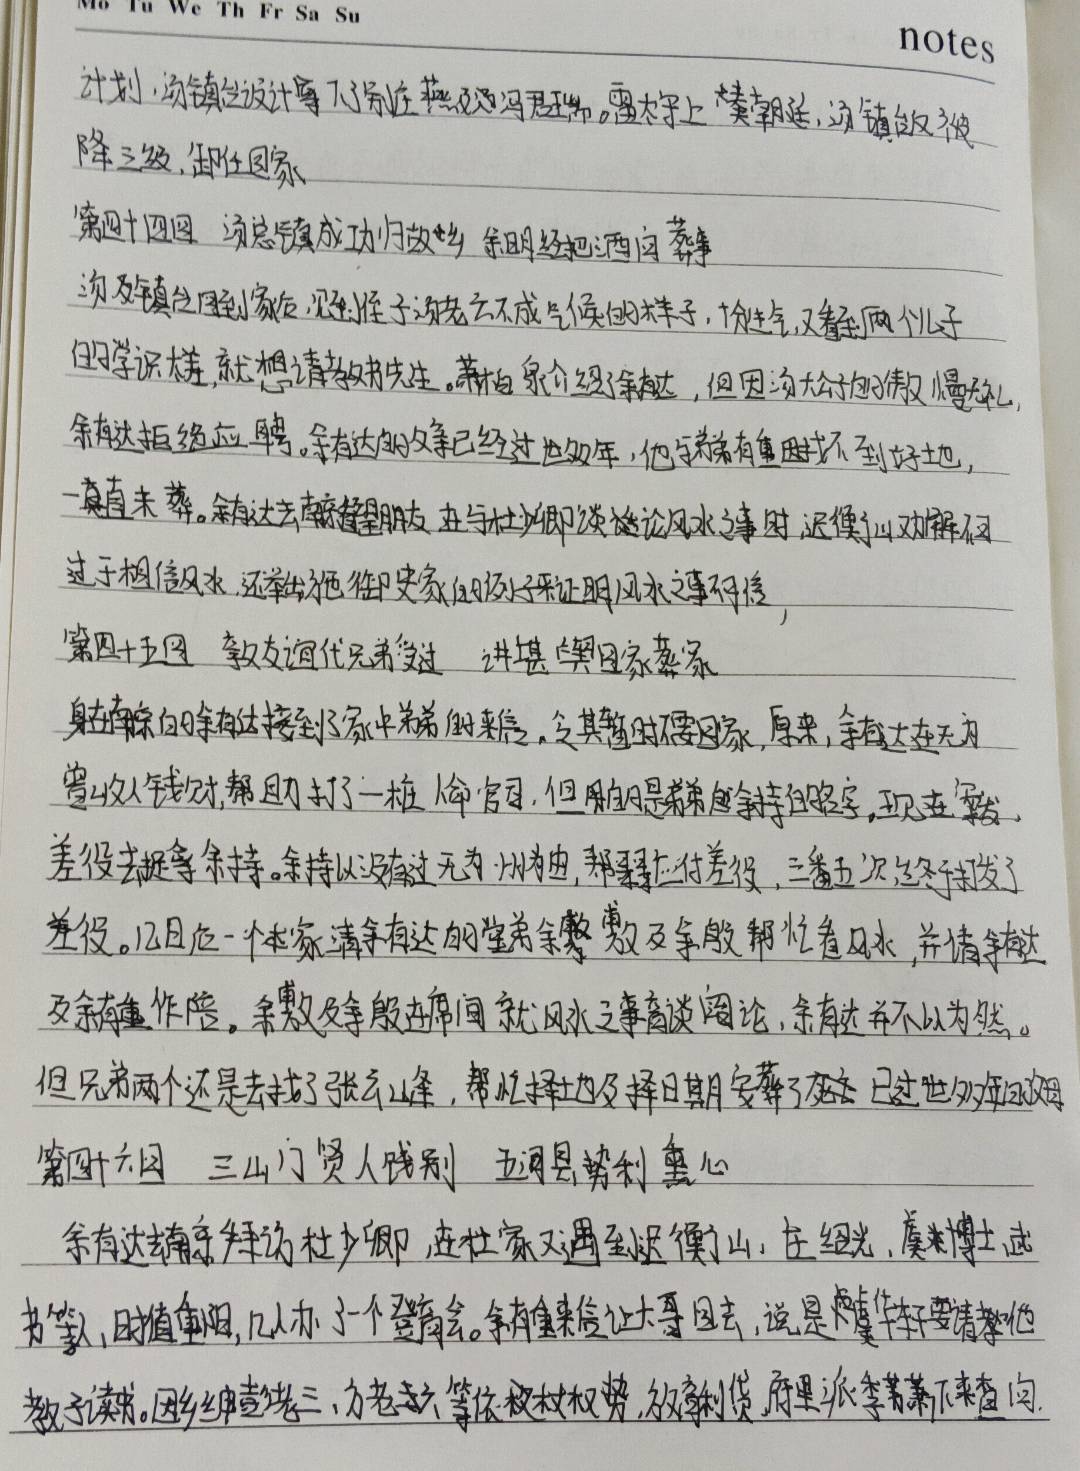 Mo Tu We Th Fr Sa Su
notes
计划,汤镇台设计拿下了别庄燕及冯君瑞。雷太守上奏朝廷,汤镇台又被
降三级,卸任回家
第四十四回 汤总镇成功归故乡 余明经把酒问葬事
汤镇台回到家后,见到侄子汤老六不成气候的样子,十分生气,又看到两个儿子
的学识太差,就想请教书先生。萧柏泉介绍了余有达,但因汤大公子的傲慢无礼,
余有达拒绝应聘。余有达的父亲已经过世多年,他与弟弟有重因找不到好地,
一直未葬。余有达去南京看望朋友 在与杜少卿谈论风水之事时,迟衡山劝解不可
过于相信风水,还举出施御史家的例子来证明风水之事不可信,
第四十五回 敦友谊代兄受过 讲堪舆回家葬
身在南京的余有达接到了家中弟弟的来信。令其暂时不要回家,原来,余有达在无为
曾收人钱财,帮助打了一桩人命官司,但用的是弟弟余持的名字。现在案发,
差役去捉拿余持。余持以没有去过无为州为由,应付差役,三番五次,终于打发了
差役。几日后一个本家请余有达的堂弟余敷及余殷帮忙看风水,并请余有达
及余有重作陪。余敷及余殷在席间就风水之事高谈阔论,余有达并不以为然。
但兄弟两个还是去找了张云峰,帮忙择地及择日期安葬了已过世多年的父母
第四十六回 三山门贤人饯别 五河县势利熏心
余有达去南京拜访杜少卿,在杜家又遇到迟衡山,庄绍光,虞博士,武
书等人,时值重阳,几人办了一个登高会。余有重来信让大哥回去,说是虞华轩要请他
教子读书。因乡绅彭老三、方老六等依仗权势,放高利贷,府里派季苇萧下来查询.